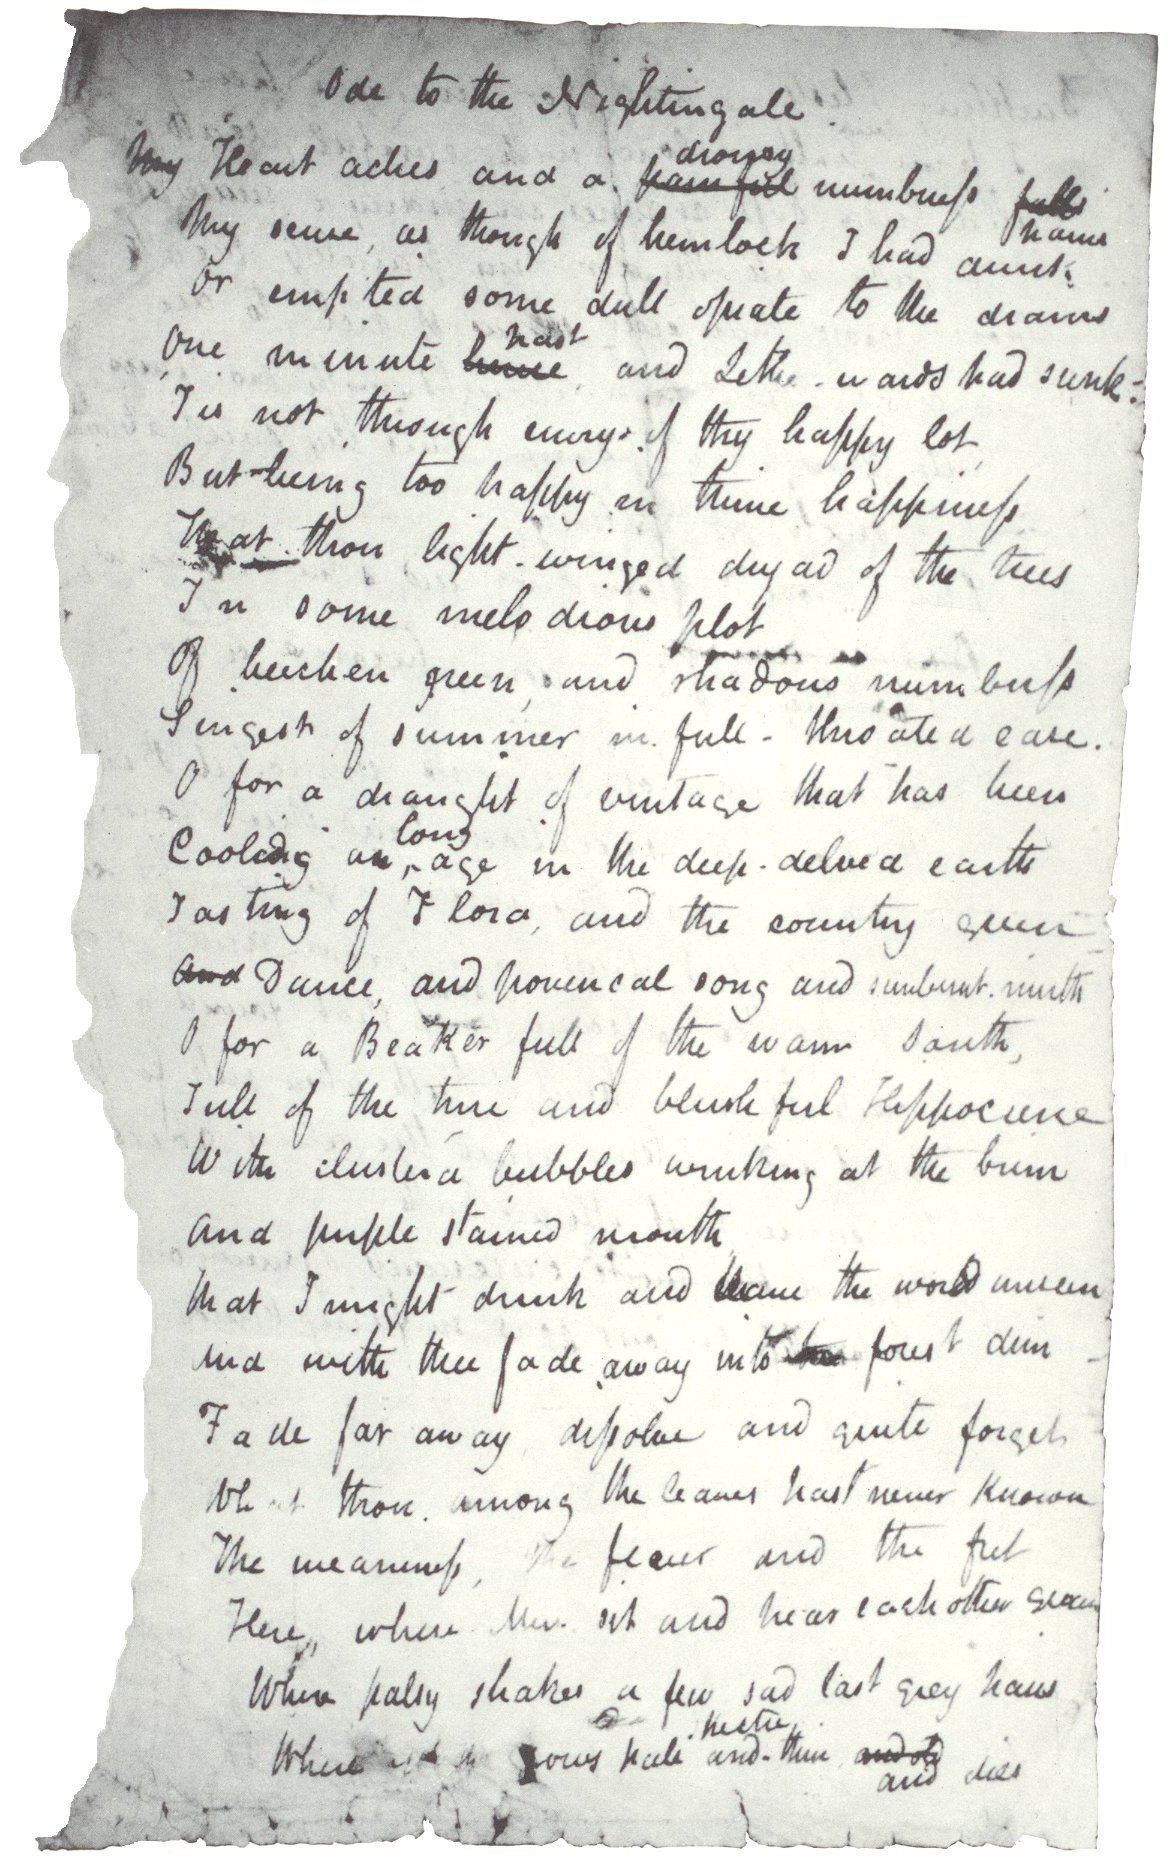 Ode to the Nightingale.
My Heart aches and a painful drowsy numbness falls pains
My sense, as though of hemlock I had drunk
Or emptied some dull opiate to the drains
One minute hence past, and Lethe-wards had sunk:
Tis not through envy of thy happy lot
But being too happy in thine happiness
That thou light-winged dryad of the trees
In some melodious plot
Of beechen green, and shadows numberless
Singest of summer in full-throated ease.
O for a draught of vintage that has been
Cooling an long age in the deep-delved earth
Tasting of Flora, and the country green
and Dance, and provencal song and sunburnt mirth
O for a Beaker full of the warm South,
Full of the true and blushful Hippocrene
With cluster'd bubbles winking at the brim
And purple stained mouth
That I might drink and leave the world unseen
And with thee fade away into the forest dim
Fade far away, dissolve and quite forget
What thou among the leaves hast never known
The weariness, the fever and the fret
Here, where Men sit and hear each other groan
Where palsy shakes a few sad last grey hairs
Where grows pale and spectre thin and old and dies